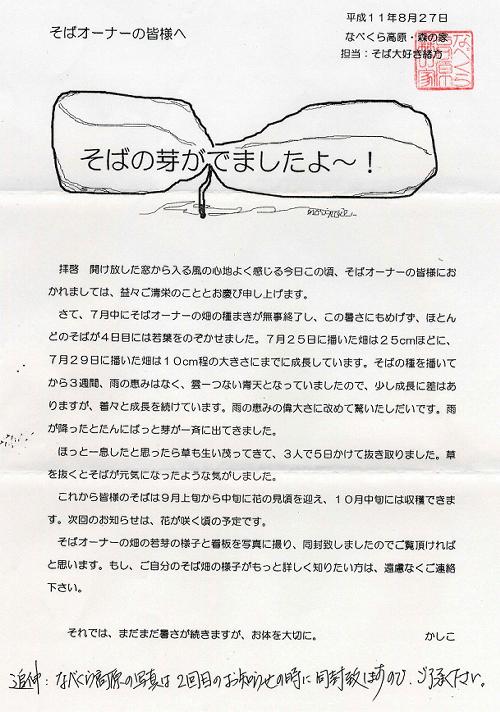 平成11年8月27日
そばオーナーの皆様へ
なべくら高原・森の家
担当：そば大好き緒方
なべくら
高原
森の家
そばの芽がでましたよ～！
拝啓　開け放した窓から入る風の心地よく感じる今日この頃、そばオーナーの皆様にお
かれましては、益々ご清栄のこととお慶び申し上げます。
さて、7月中にそばオーナーの畑の種まきが無事終了し、この暑さにもめげず、ほとん
どのそばが4日目には若葉をのぞかせました。7月25日に描いた畑は25cmほどに、
7月29日に描いた畑は10cm程の大きさにまでに成長しています。そばの種を描いて
から3週間、雨の恵みはなく、雲一つない青天となっていましたので、少し成長に差はあ
りますが、着々と成長を続けています。雨の恵みの偉大さに改めて驚いたしだいです。雨
が降ったとたんにぱっと芽が一斉に出てきました。
ほっと一息したと思ったら草も生い茂ってきて、3人で5日かけて抜き取りました。草
を抜くとそばが元気になったような気がしました。
これから皆様のそばは9月上旬から中旬に花の見頃を迎え、10月中旬には収穫できま
す。次回のお知らせは、花が咲く頃の予定です。
そばオーナーの畑の若芽の様子と看板を写真に撮り、同封致しましたのでご覧頂ければ
と思います。もし、ご自分のそば畑の様子がもっと詳しく知りたい方は、遠慮なくご連絡
下さい。
それでは、まだまだ暑さが続きますが、お体を大切に。
かしこ
追伸：なべくら高原の写真は2回目のお知らせの時に同封致しますので、ご了承ください。